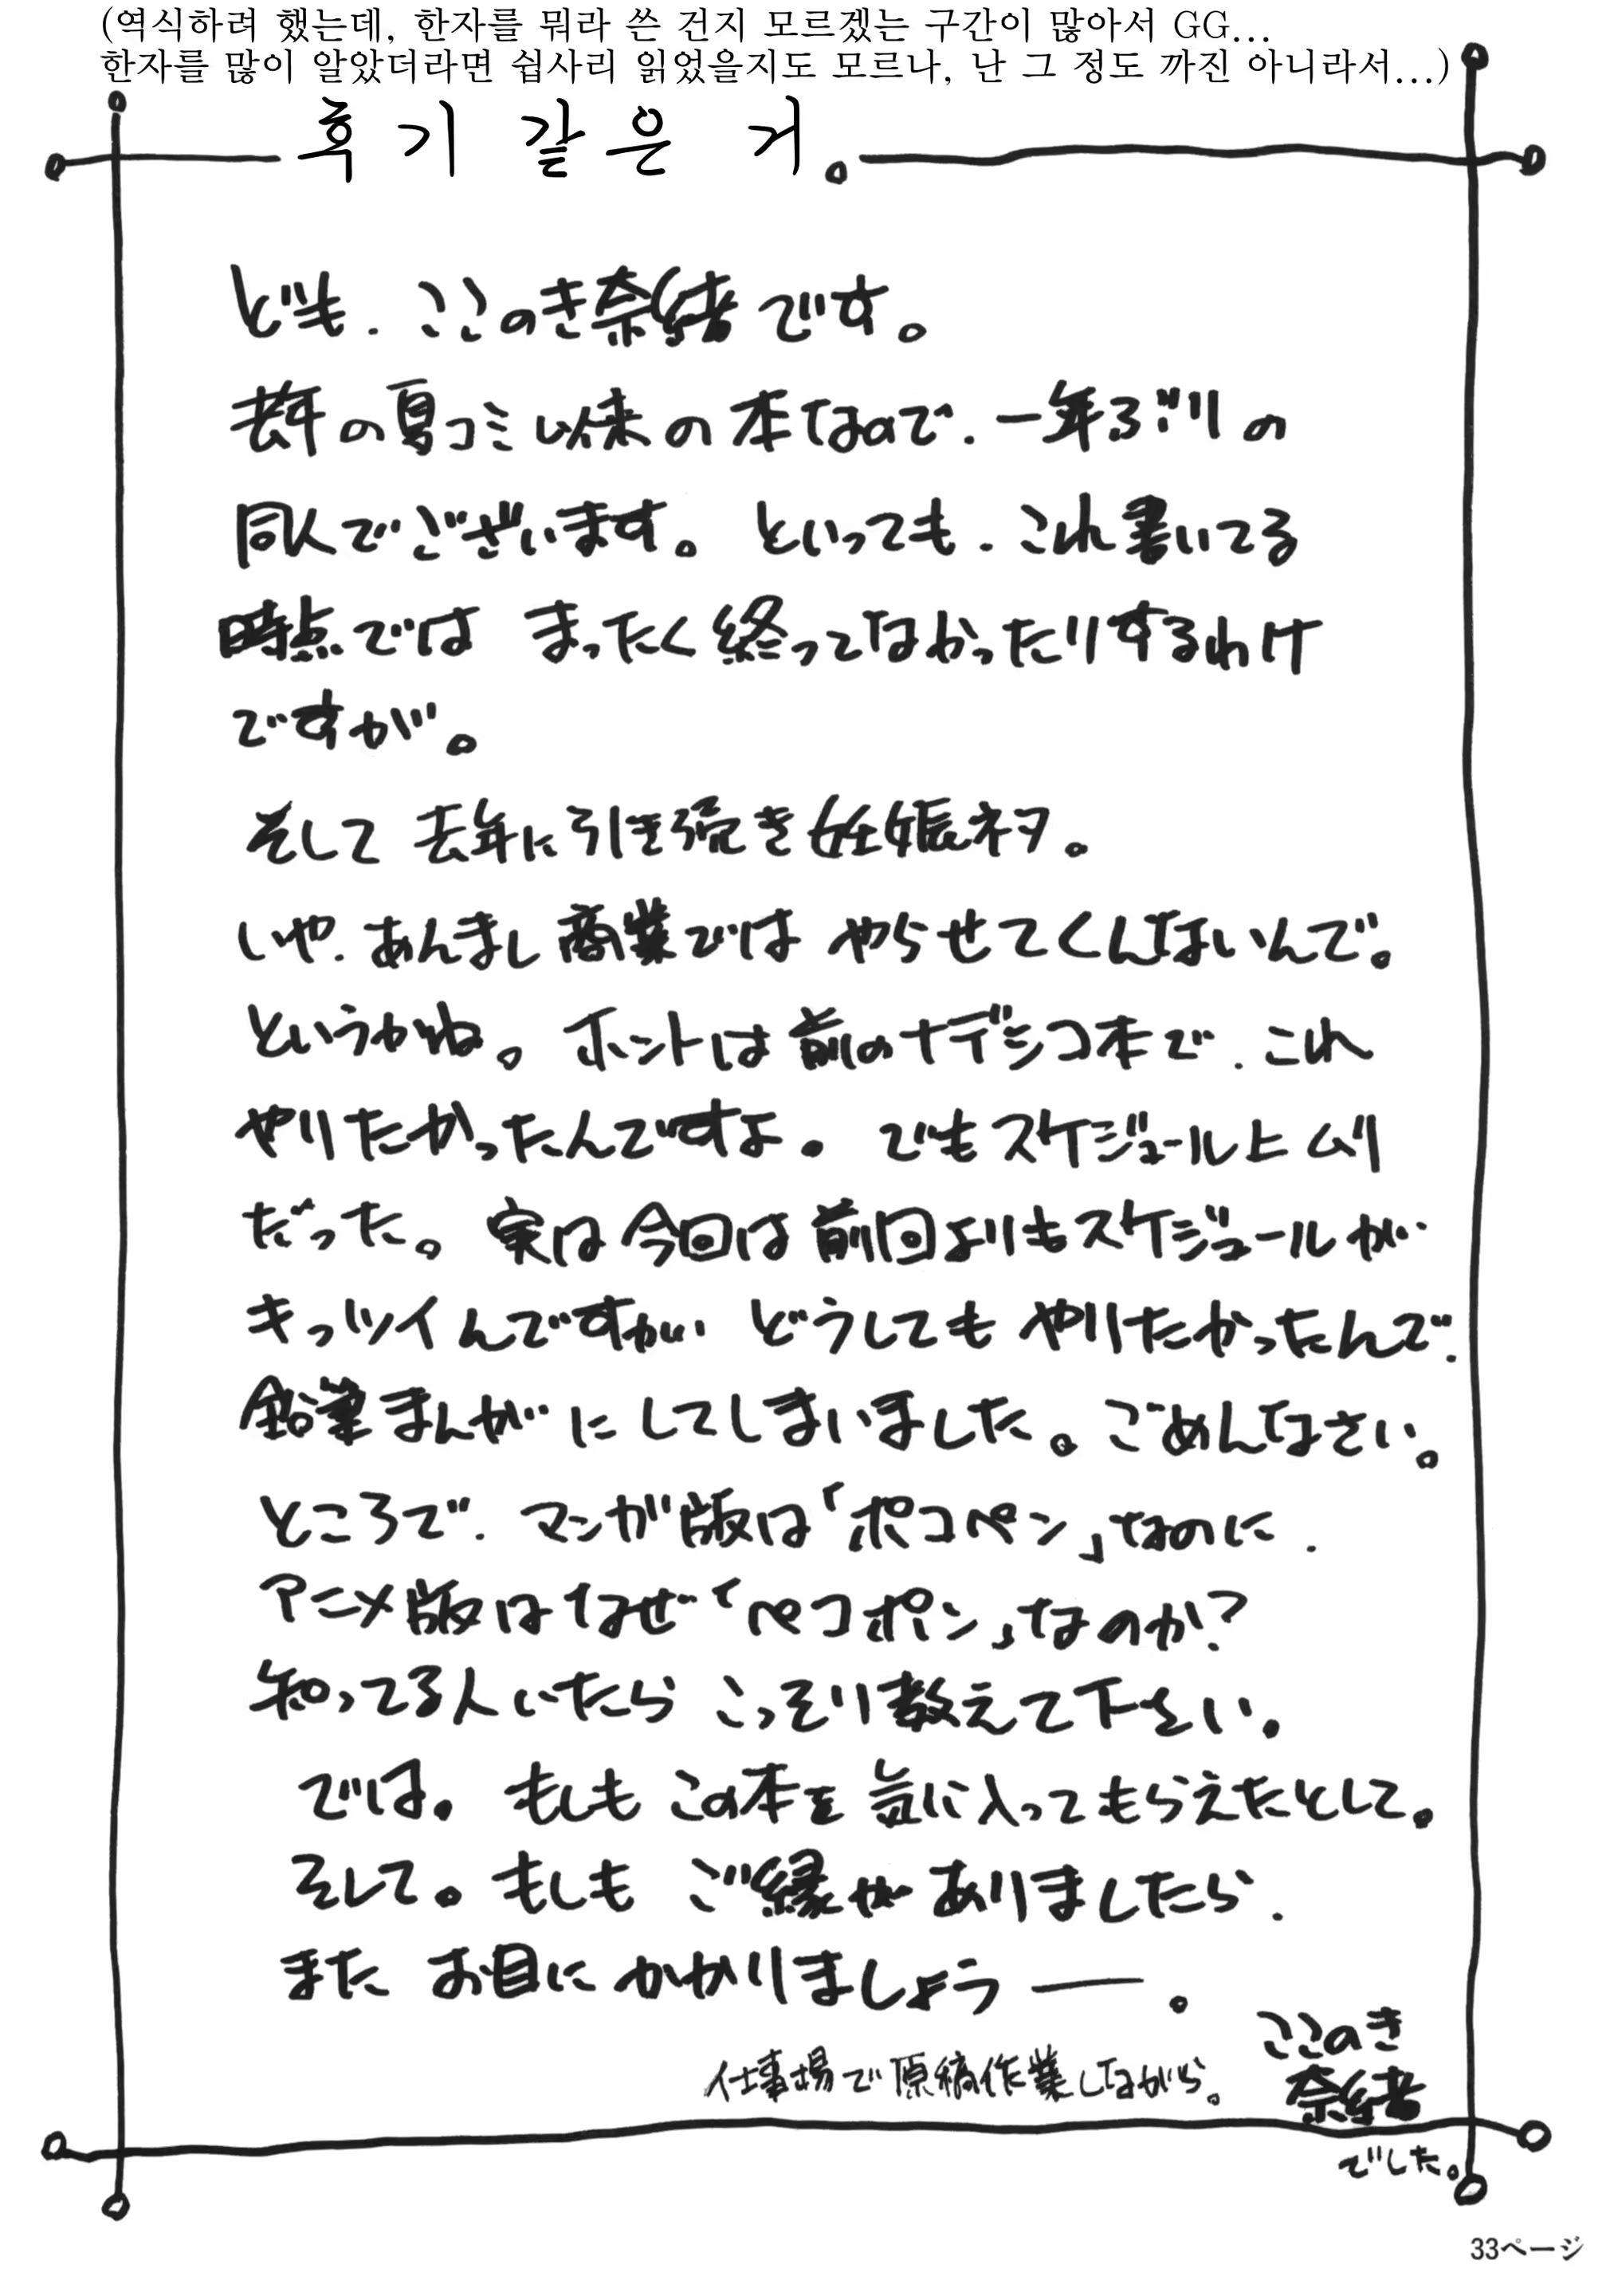 (역식하려 했는데, 한자를 뭐라 쓴 건지 모르겠는 구간이 많아서 GG...
한자를 많이 알았더라면 쉽사리 읽었을지도 모르나, 난 그 정도 까진 아니라서...)
후기 같은 거。
ども．ここのき奈緒です。
去年の夏コミ以来の本なので．一年ぶりの
同人でございます。といっても．これ書いてる
時点では まったく終ってなかったりするわけ
ですが。
そして 去年に引き続き妊娠ネタ。
いや．あんまし商業では やらせてくんないんで。
というかね。ホントは前のナデシコ本で．これ
やりたかったんですよ。でもスケジュール上ムリ
だった。実は今回は前回よりもスケジュールが
キッツイんですがどうしてもやりたかったんで．
鉛筆まんがにしてしまいました。ごめんなさい。
ところで．マンガ版は「ポコペン」なのに．
アニメ版はなぜ「ペコポン」なのか?
知ってる人いたら こっそり教えて下さい．
では。もしもこの本を気に入ってもらえたとして。
そして。もしも ご縁がありましたら．
また お目にかかりましょうー。
仕事場で原稿作業しながら。
ここのき
奈緒
でした。
33ページ